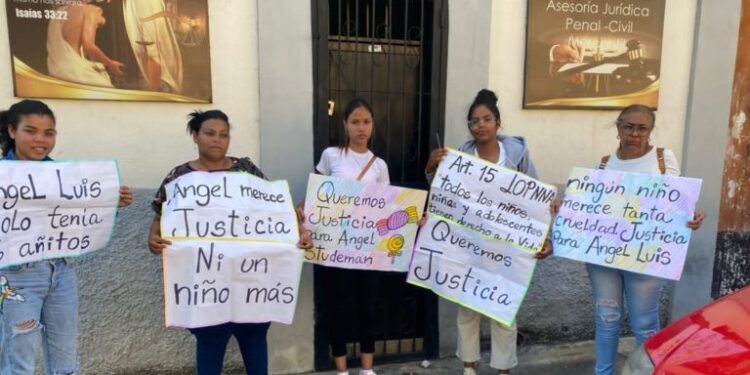 Isaías 33:22
Asesoría Jurídica
Penal - Civil
Angel Luis
solo tenía
añitos
Ángel merece
Justicia
Ni un
niño más
Queremos
Justicia
Para Ángel
Studeman
Art. 15 LOPNNA
"todos los niños,
niñas y adolescentes
tienen derecho a la vida"
Queremos
Justicia
ningún niño
merece tanta
crueldad Justicia
Para Ángel Luis